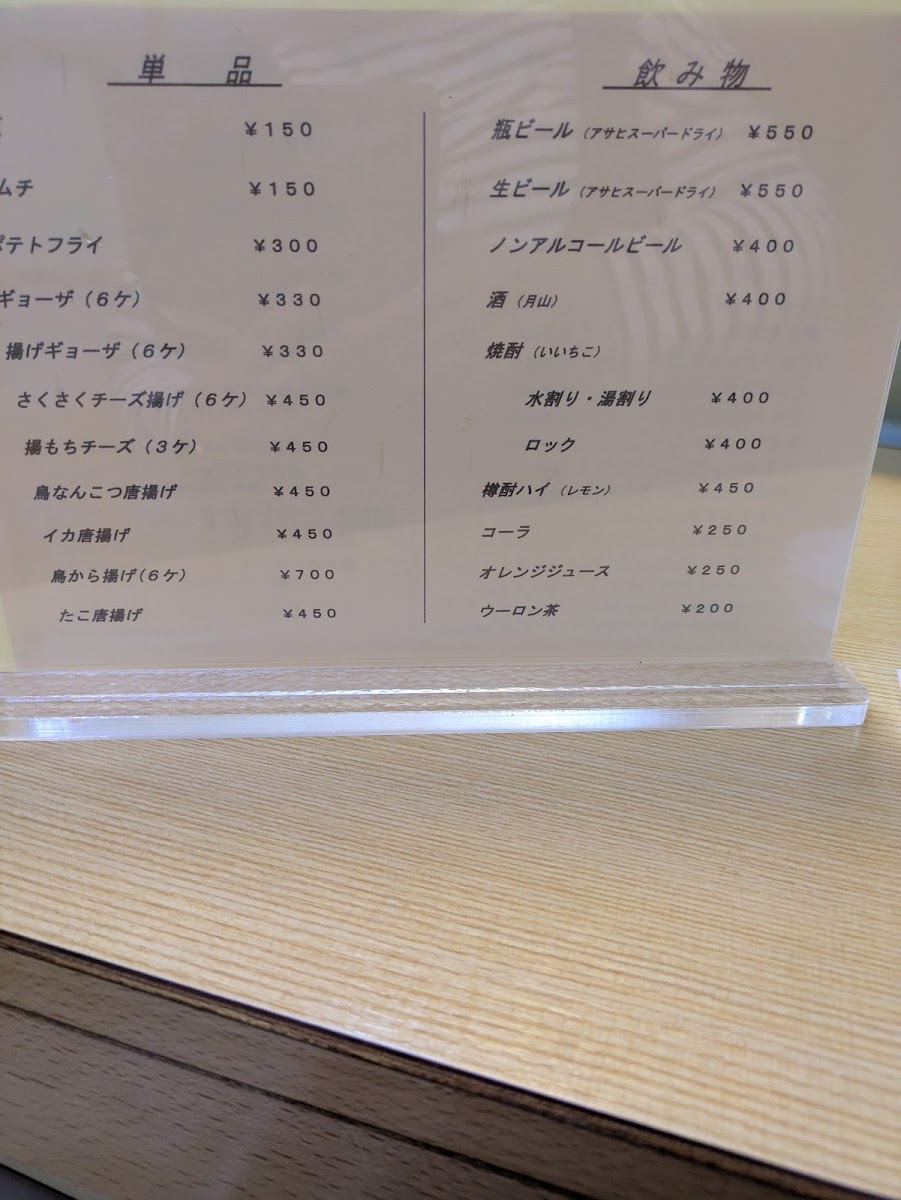 単 品
¥150
ムチ ¥150
ポテトフライ ¥300
ギョーザ（6ケ） ¥330
揚げギョーザ（6ケ） ¥330
さくさくチーズ揚げ（6ケ） ¥450
揚もちチーズ（3ケ） ¥450
鳥なんこつ唐揚げ ¥450
イカ唐揚げ ¥450
鳥から揚げ（6ケ） ¥700
たこ唐揚げ ¥450
飲み物
瓶ビール（アサヒスーパードライ） ¥550
生ビール（アサヒスーパードライ） ¥550
ノンアルコールビール ¥400
酒（月山） ¥400
焼酎（いいちこ）
水割り・湯割り ¥400
ロック ¥400
樽酎ハイ（レモン） ¥450
コーラ ¥250
オレンジジュース ¥250
ウーロン茶 ¥200